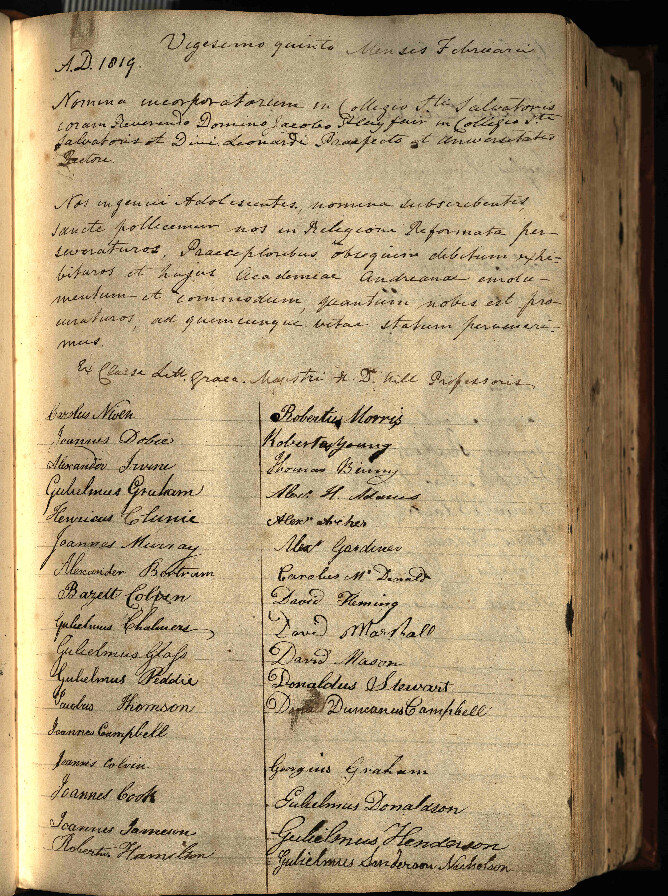 Vigesimo quinto Mensis Februarii
A.D. 1819.
Nomina incorporatorum in Collegio Sti Salvatoris
coram Reverendo Domino Jacobo Playfair in Collegio Sti
Salvatoris et Divi Leonardi Praefecto et Universitatis
Rectore.
Nos ingenui Adolescentes, nomina subscribentes,
sancte pollicemur nos in Religione Reformata per-
severaturos, Praeceptoribus obsequium debitum exhi-
bituros et hujus Academiae Andreanae emolu-
mentum et commodum, quantum nobis est pro-
curaturos, ad quemcunque vitae statum perveneri-
mus.
Ex Classe Litt. Graec. Magistri H. D. Hill Professoris.
Carolus Niven
Joannes Dobie
Alexander Irvine
Gulielmus Graham
Henricus Clunie
Joannes Murray
Alexander Bartram
Bazett Colvin
Gulielmus Chalmers
Gulielmus Glass
Gulielmus Peddie
Jacobus Thomson
Joannes Campbell
Joannes Colvin
Joannes Cook
Joannes Jameson
Robertus Hamilton
Robertus Morris
Robertus Young
Thomas Binny
Alexr H. Adams
Alexr Archer
Alexr Gardiner
Carolus Mc Donald
David Fleming
David Marshall
David Mason
Donaldus Stewart
Duncanus Campbell
Georgius Graham
Gulielmus Donaldson
Gulielmus Henderson
Gulielmus Sanderson Nicholson